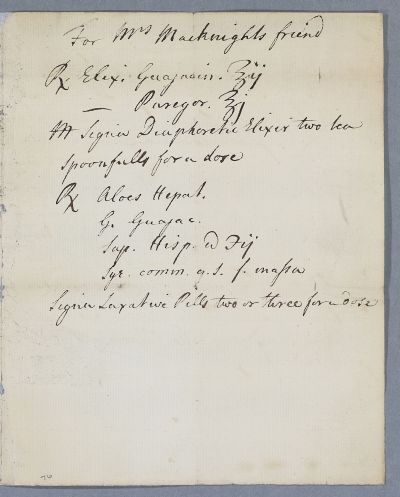 For Mrs Macknights friend
℞ Elix. Guajacin. ℥ij
— Paregor. ℥j
M Signa Diaphoretic Elixir two tea
spoonfulls for a dose
℞ Aloes Hepat.
G. Guajac.
Sap. Hisp. a ℈ij
Syr. comm. q. s. f. massa
Signa Laxative Pills two or three for a dose